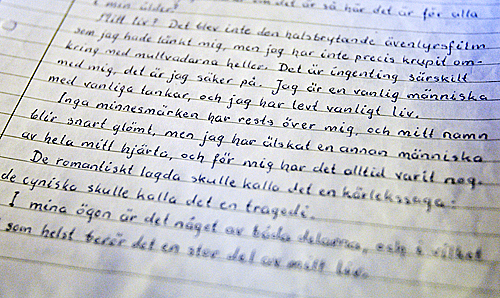 i min ålder? om det är så här det är för alla
Mitt liv? Det blev inte den halsbrytande äventyrsfilm
som jag hade tänkt mig, men jag har inte precis krupit om-
kring med mullvadarna heller. Det är ingenting särskilt
med mig, det är jag säker på. Jag är en vanlig människa
med vanliga tankar, och jag har levt vanligt liv.
Inga minnesmärken har rests över mig, och mitt namn
blir snart glömt, men jag har älskat en annan människa
av hela mitt hjärta, och för mig har det alltid varit nog.
De romantiskt lagda skulle kalla det en kärlekssaga:
de cyniska skulle kalla det en tragedi.
I mina ögon är det något av båda delarna, och i vilket
som helst berör det en stor del av mitt liv.